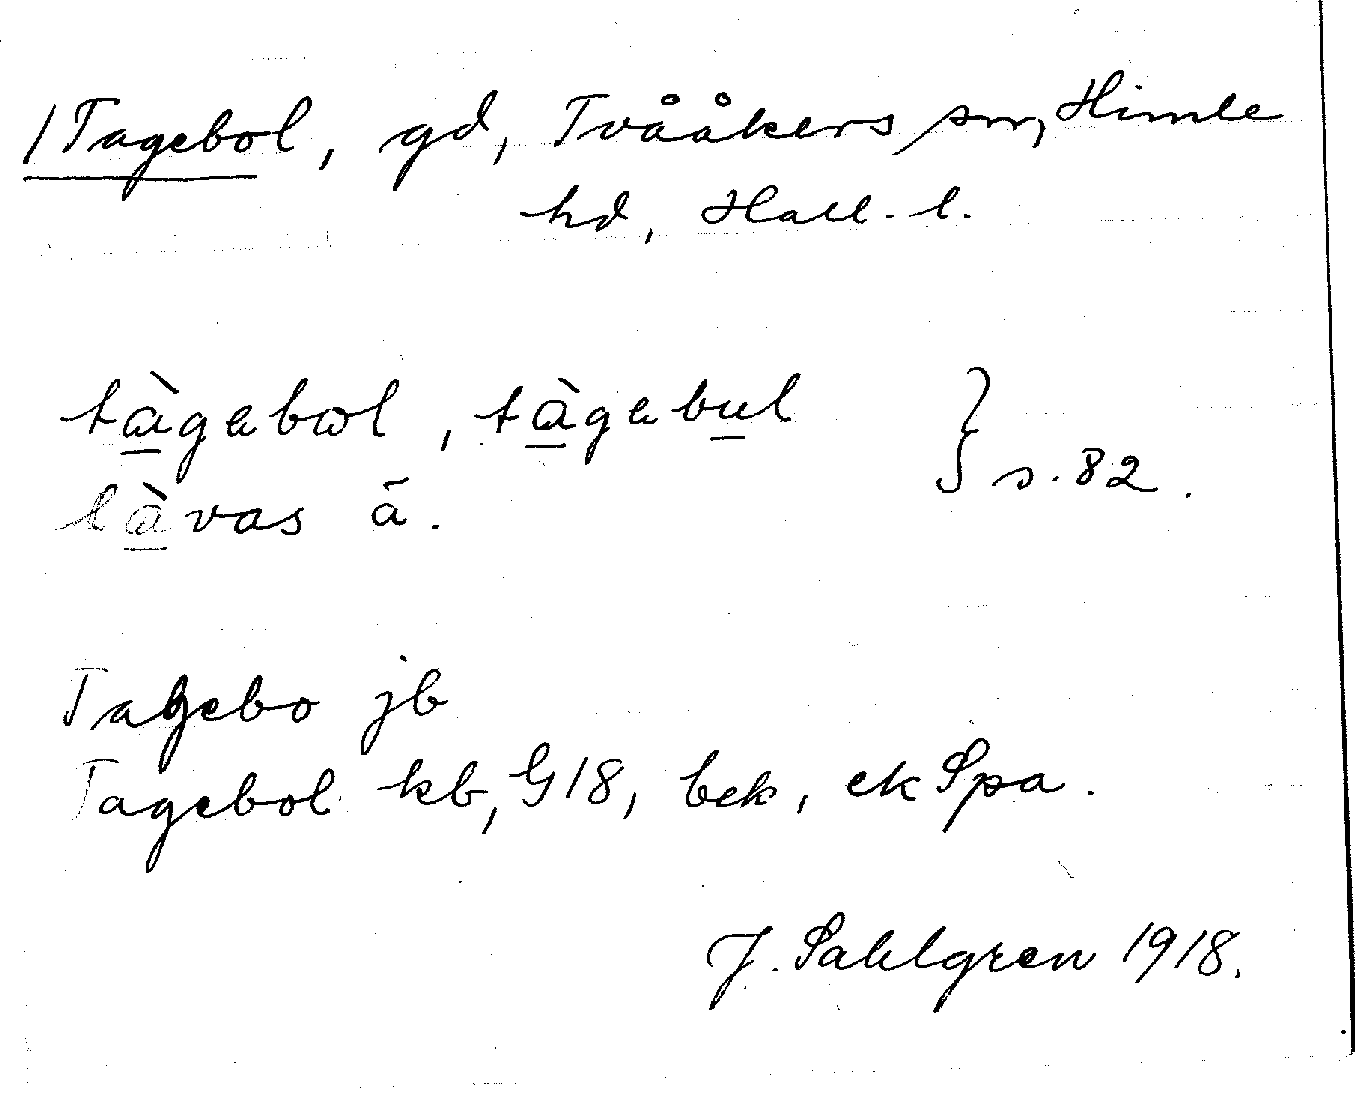 /Tagebol, gd, Tvååkers sn, Himle
hd, Hall. l.
tàgabωl, tàgabul } s. 82.
làvas ā.
Tagebo jb
Tagebol kb, G18, bek, ek Spa.
J. Sahlgren 1918.